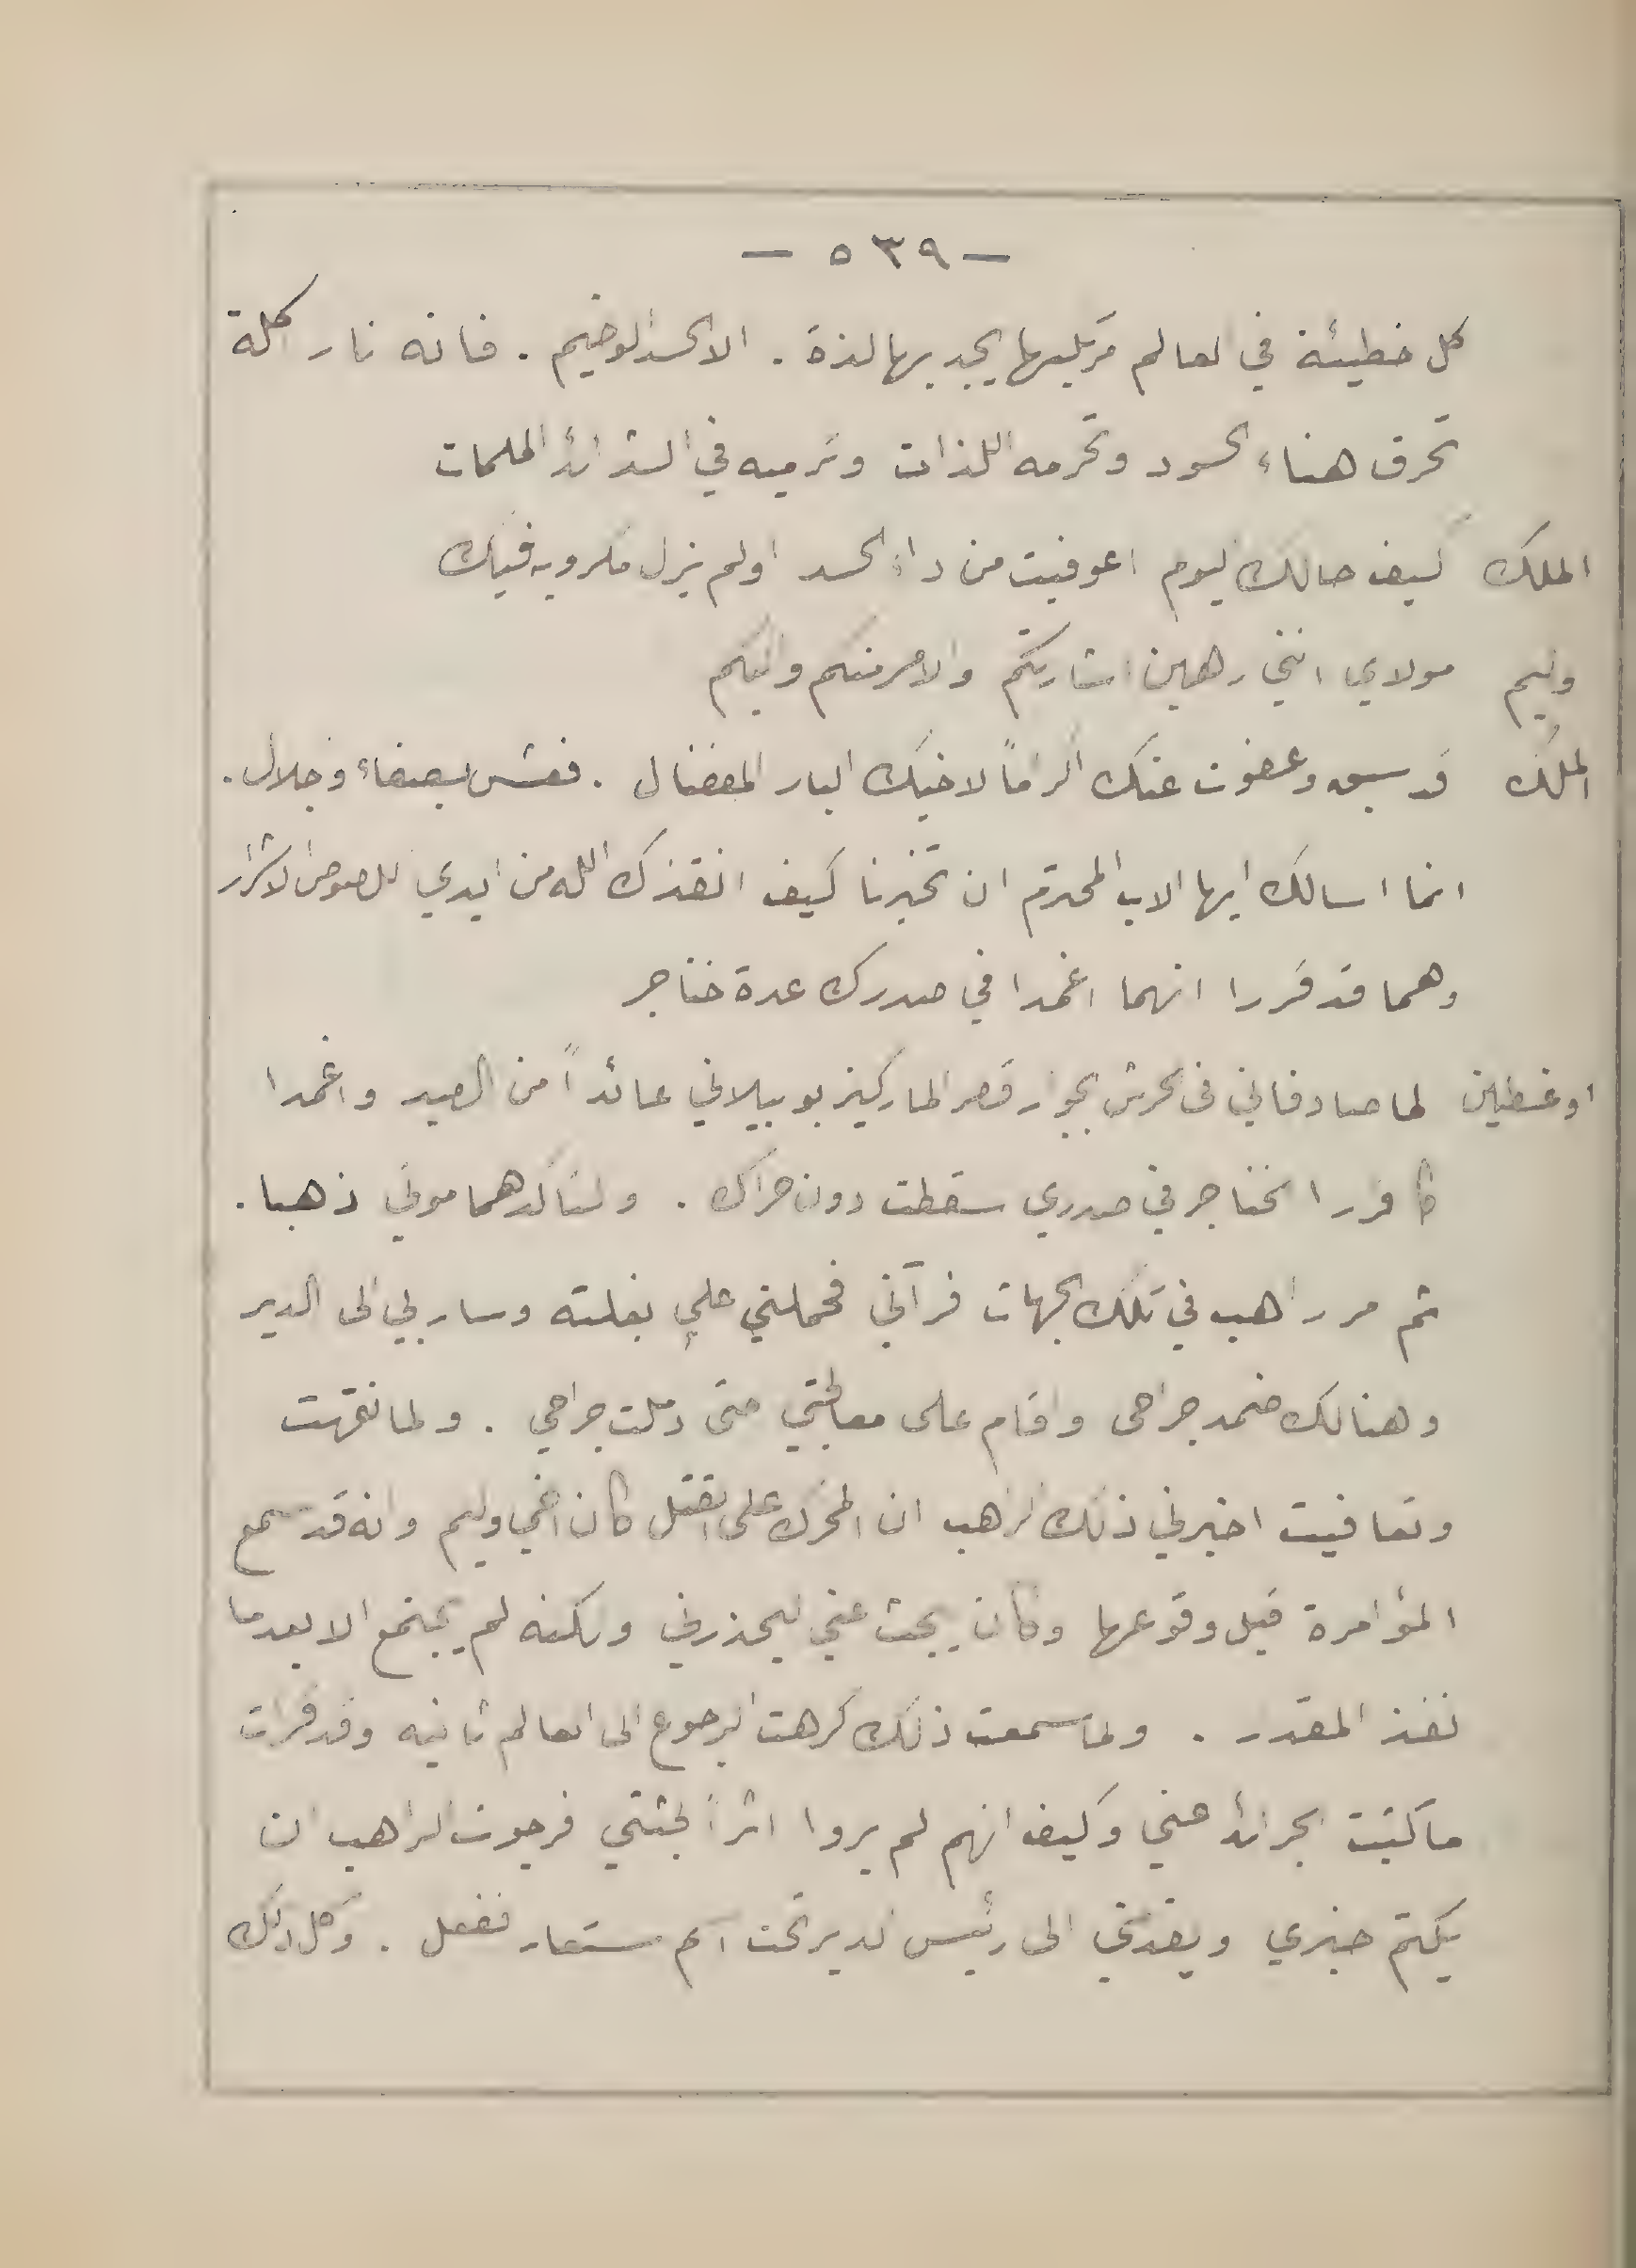 — ٥٣٩ —
كل خطيئة في العالم مرتكبها يجد بها لذة . الا الحسد الوخيم . فانه نار اكلة
تحرق هناء الحسود وتحرمه اللذات وترميه في الشدائد الملمات
الملك كيف حالك اليوم اعوفيت من داء الحسد اولم يزل مكروبه فيك
وليم مولاي انني رهين اشارتكم والامر منكم واليكم
الملك قد سبق وعفوت عنك اكراماً لاخيك البار المفضال . فعش بصفاء وجلال .
انما اسالك ايها الاب المحترم ان تخبرنا كيف انقذك الله من ايدي اللصوص الاشرار
وهما قد قررا انهما اغمدا في صدرك عدة خناجر
اوغسطين لما صادفاني في الحرش بجوار قصر الماركيز بوبيلاني عائداً من الصيد واغمدا
كما قررا الخناجر في صدري سقطت دون حراك . ولتاكدهما موتي ذهبا .
ثم مر راهب في تلك الجهات فرآني فحملني علي بغلته وسار بي الى الدير
وهنالك ضمد جراحي واقام على معالجتي حتى دملت جراحي . ولما نقهت
وتعافيت اخبرني ذلك الراهب ان المحرك على القتل كان اخي وليم وانه قد سمع
المؤامرة قبل وقوعها وكان يبحث عني ليحذرني ولكنه لم يجتمع الا بعد ما
نفذ المقدر . ولما سمعت ذلك كرهت الرجوع الى العالم ثانيه وقد قرات
ما كتبت الجرائد عني وكيف انهم لم يروا اثراً لجثتي فرجوت الراهب ان
يكتم خبري ويقدمني الى رئيس الدير تحت اسم مستعار ففعل . وكل ذلك